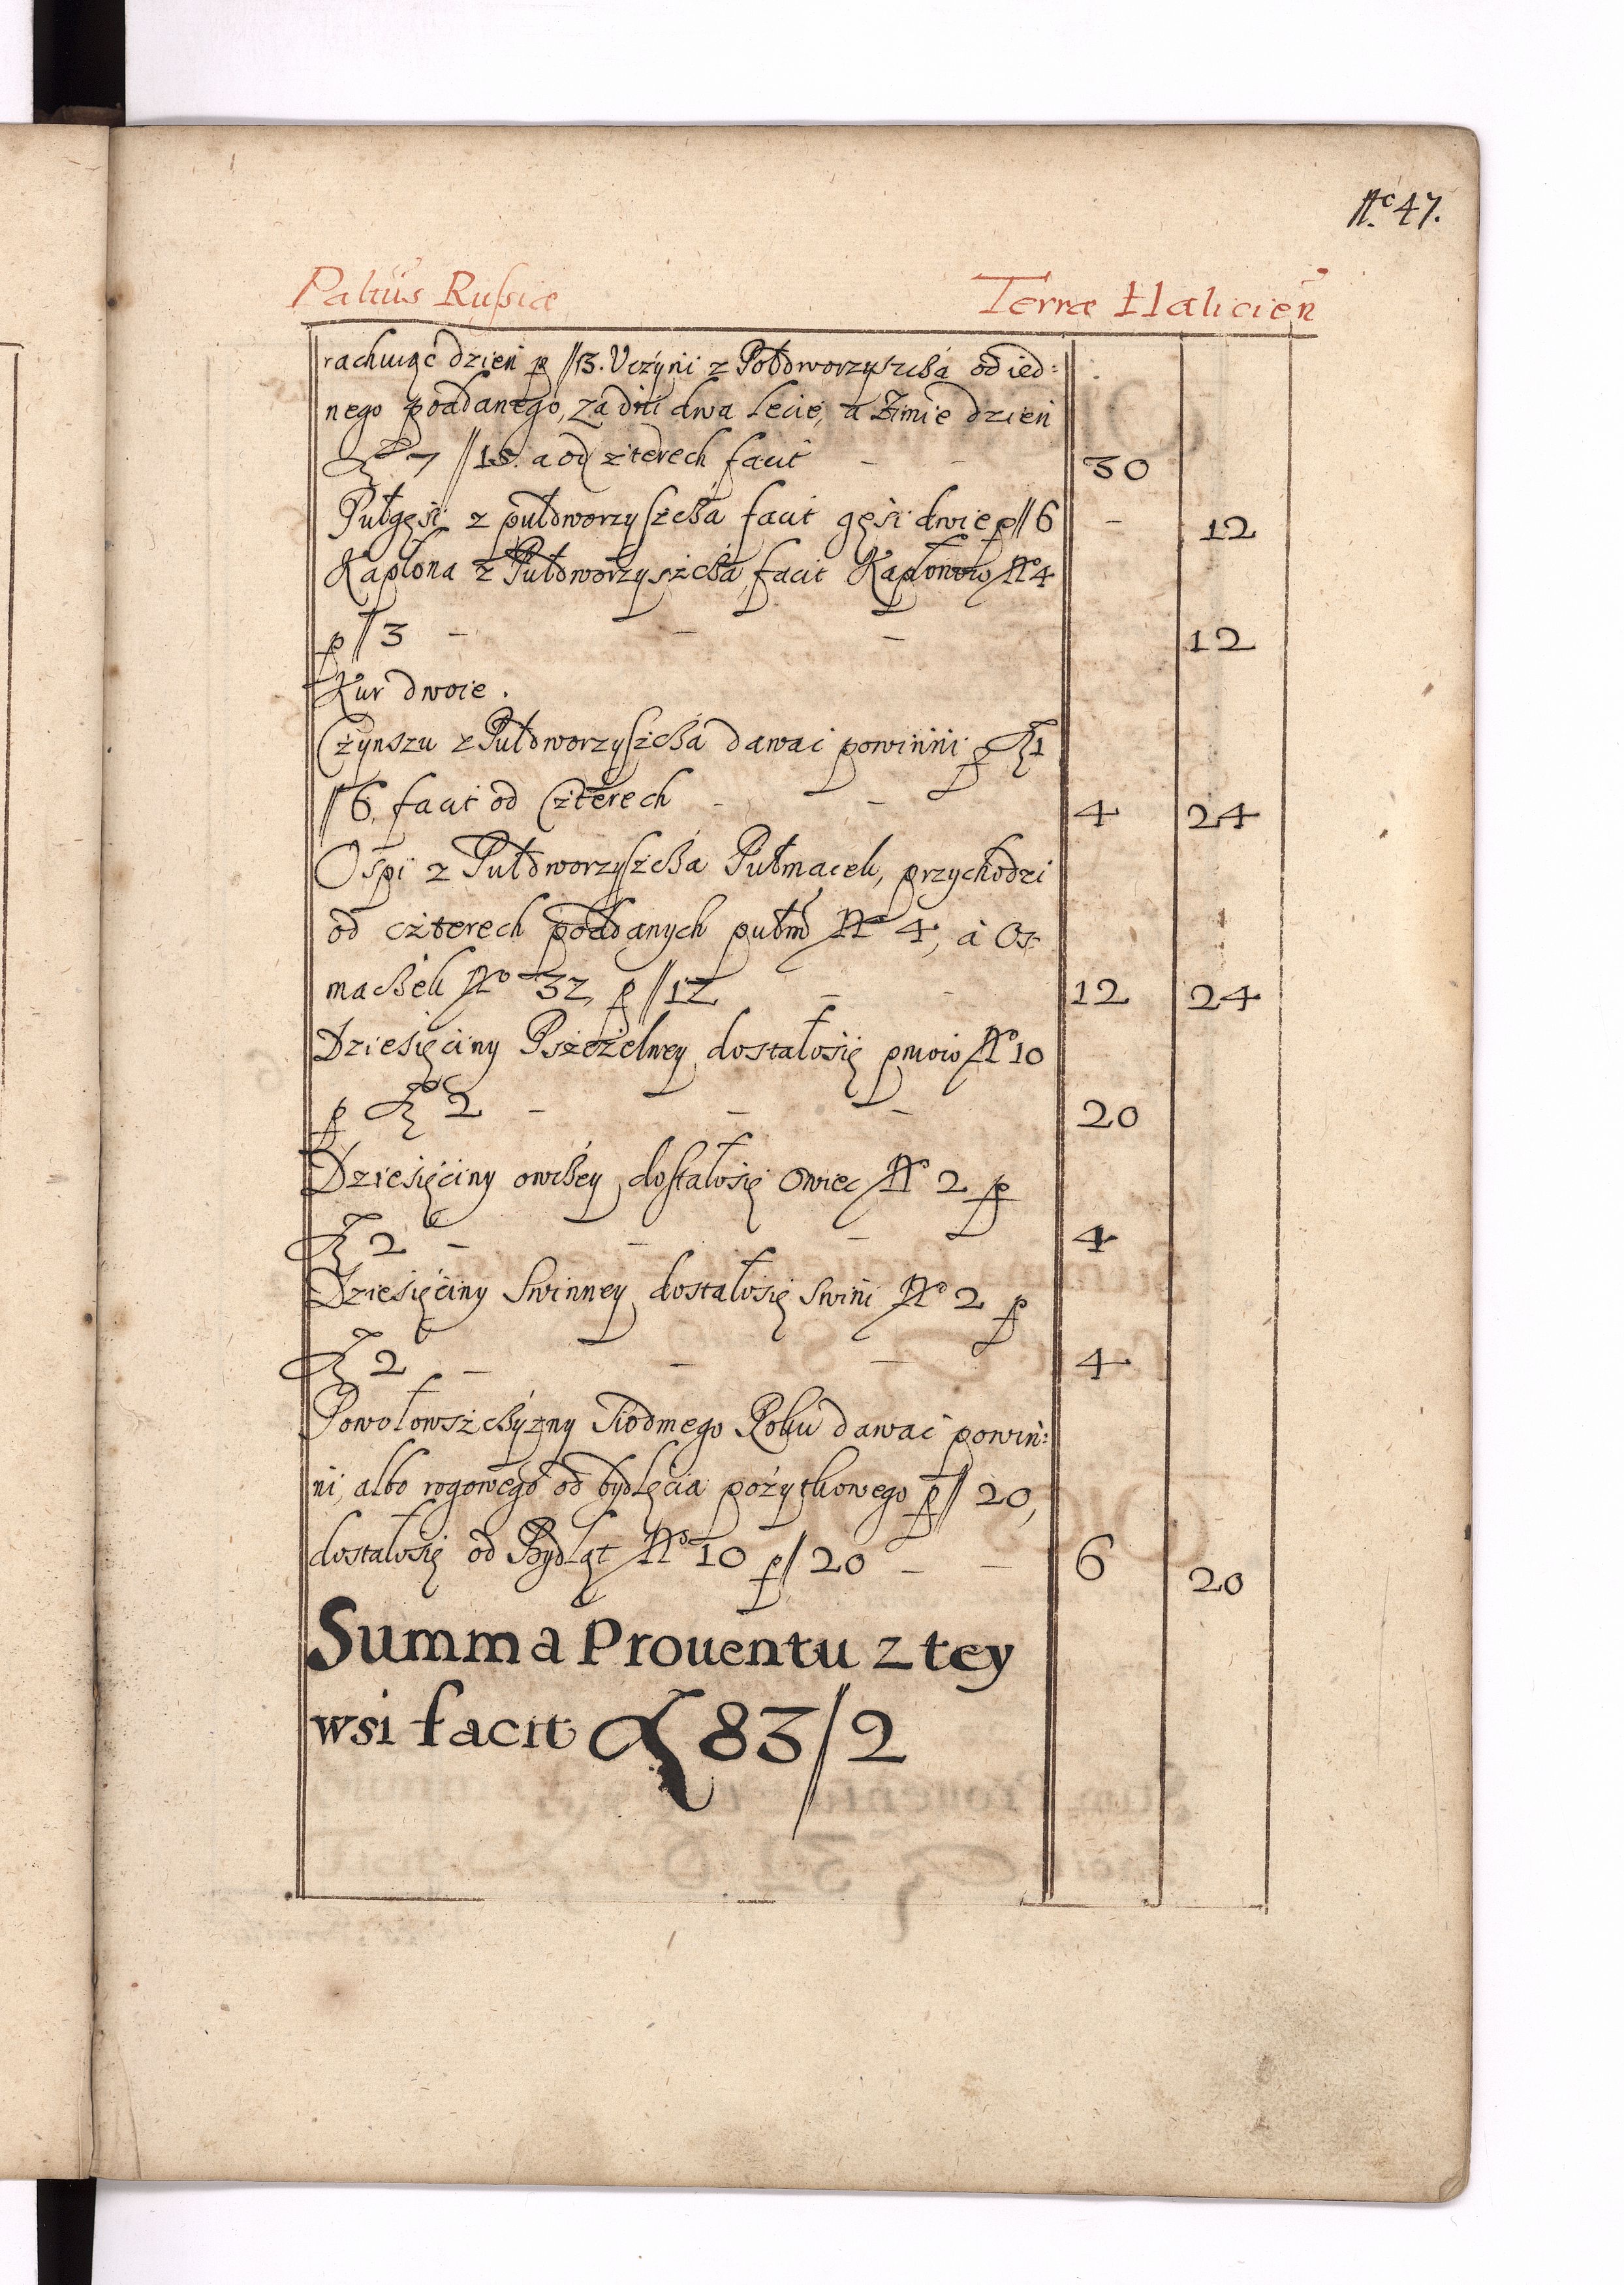 No 47.
Paltūs Russiæ Terræ Halicien̄
rachuiąc dzień p // 13. Uczÿni z Połdworzyszcża od ied:
nego poddanego, za dni dwa lecie, a Zimie dzień
zł 7 // 15. a od czterech facit – – 30
Pułgęsi z pułdworzyszcża facit gęsi dwie p // 6 – 12
Kapłona z Pułdworzyszcża facit Kapłonow No 4
p // 3 – – – 12
Kur dwoie.
Czÿnszu z Pułdworzyszcża dawać powinni p zł 1
// 6, facit od Czterech – – 4 24
Ospi z Pułdworzyszcża Pułmacek, przychodzi
od czterech poddanych pułm No 4, a Os-
maczek No 32, p // 12 – – 12 24
Dziesięciny Pszczelney dostałosię pniow No 10
p zł 2 – – – 20
Dziesięciny owczey dostałosię Owiec No 2 p
zł 2 – – – 4
Dziesięciny Swinney dostałosię swini No 2 p
zł 2 – – – 4
Powołowszczÿzny Siodmego Roku dawać powin:
ni, albo rogowego od bydlęcia pożytkowego p // 20,
dostałosię od Bydląt No 10 p // 20 – – 6 20
Summa Prouentu z tey
wsi facit zł 83 // 2